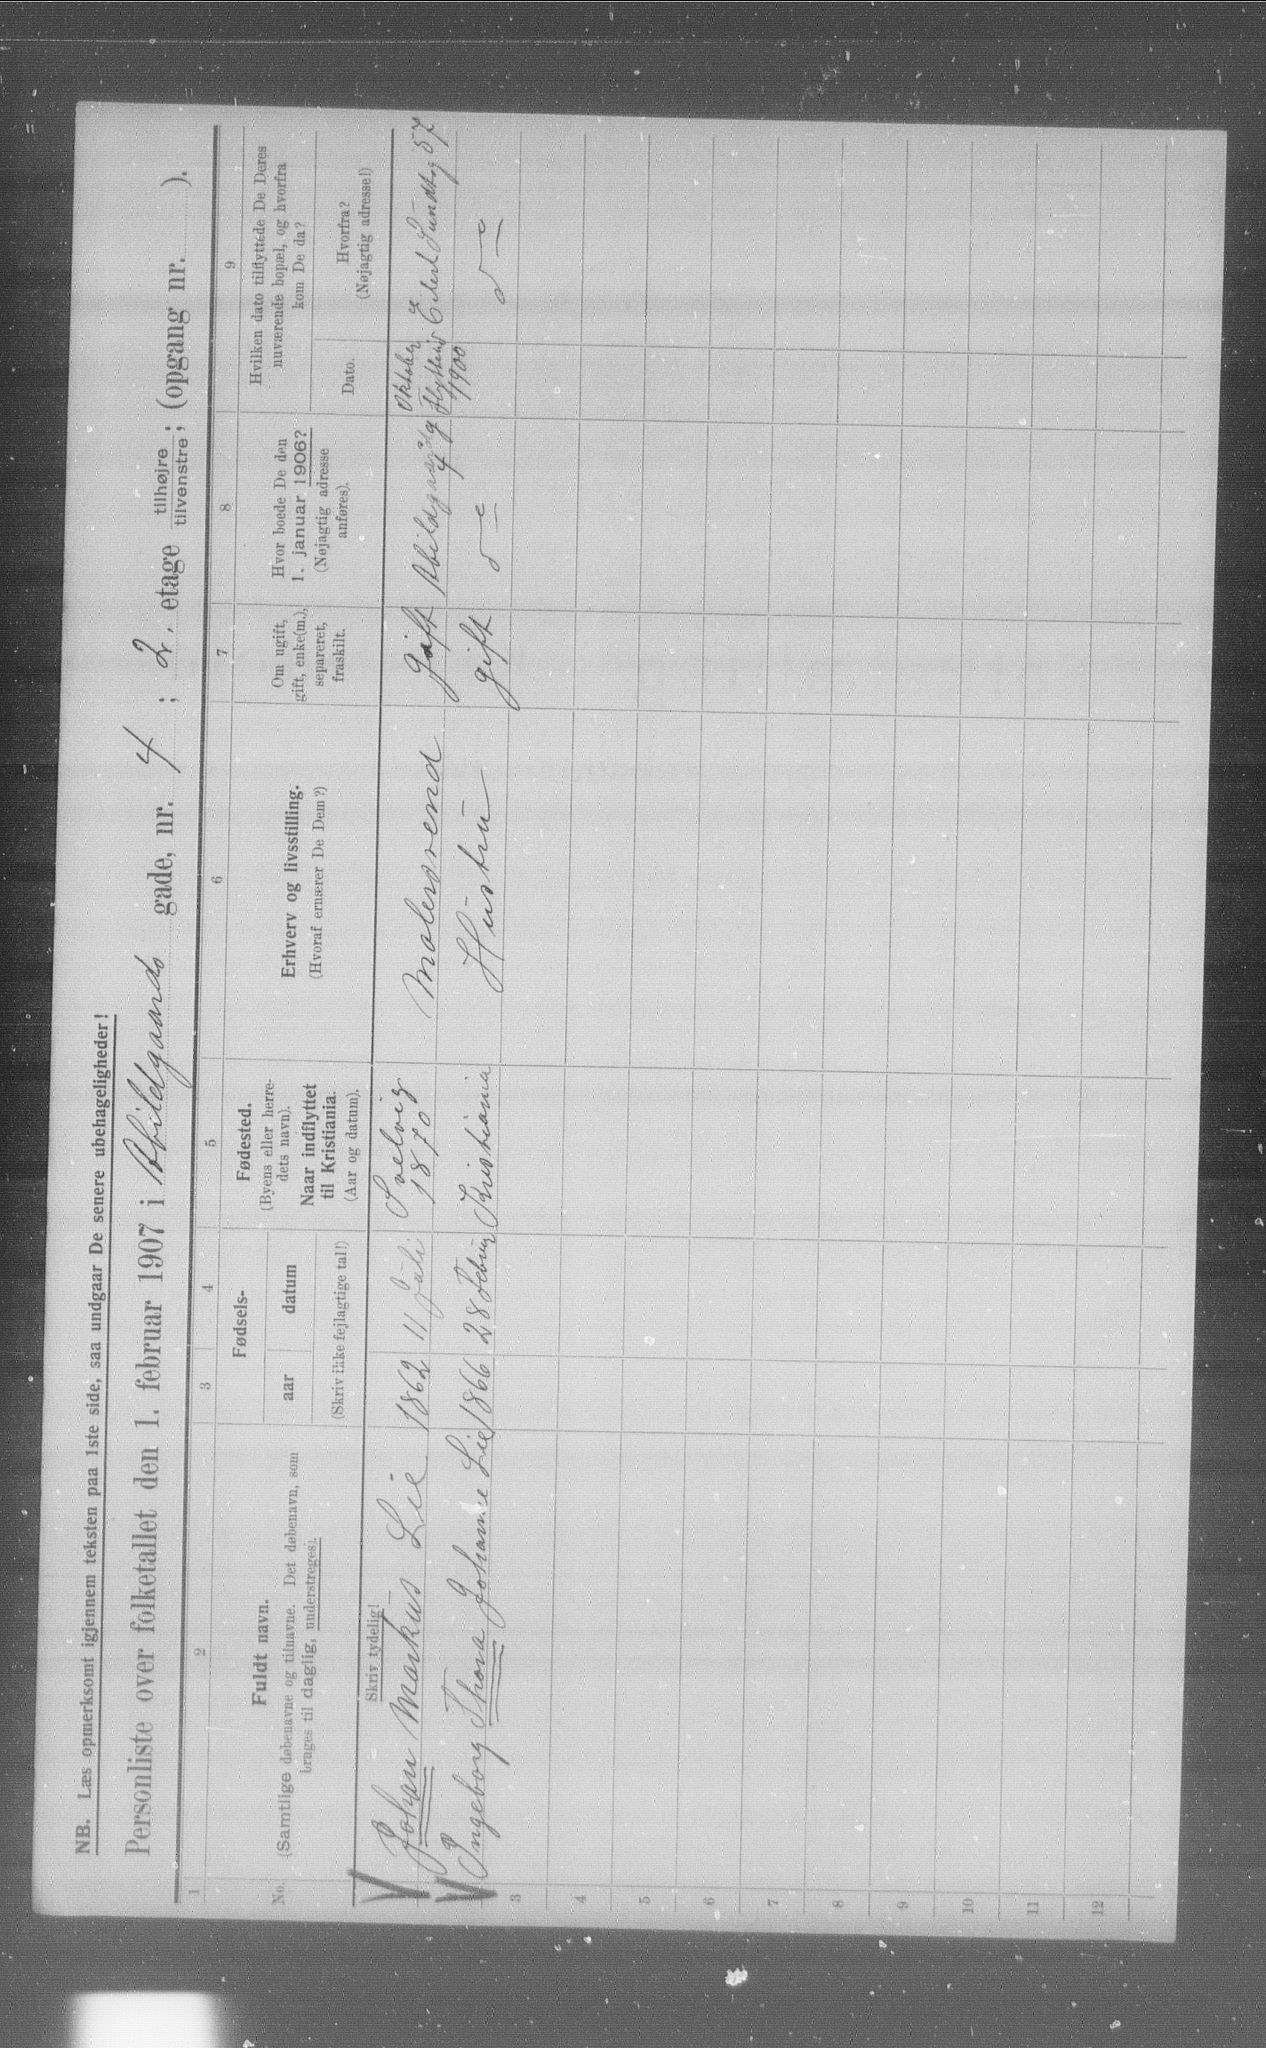 NB. Læs opmerksomt igjennem teksten paa 1ste side, saa undgaar De senere ubehageligheder!
Personliste over folketallet den 1. februar 1907 i Abildgaards gade, nr. 4 ; 2. etage tilhøjre tilvenstre ; (opgang nr. ).
1 2 3 4 5 6 7 8 9
No.
Fuldt navn.
(Samtlige døbenavne og tilnavne. Det døbenavn, som
bruges til daglig, understreges).
Skriv tydelig!
Fødsels-
aar datum
(Skriv ikke fejlagtige tal!)
Fødested.
(Byens eller herre-
dets navn).
Naar indflyttet
til Kristiania.
(Aar og datum).
Erhverv og livsstilling.
(Hvoraf ernærer De Dem?)
Om ugift,
gift, enke(m.),
separeret,
fraskilt.
Hvor boede De den
1. januar 1906?
(Nøjagtig adresse
anføres).
Hvilken dato tilflyttede De Deres
nuværende bopæl, og hvorfra
kom De da?
Dato.
Hvorfra?
(Nøjagtig adresse!)
Johan Markus Lie 1862 11 Juli Svelvig 1870 Malersvend gift Abildgaardsg 4 Oktober Flyttetid 1900 Eilert Sundtsg 57
Ingeborg Thora Johanne Lie 1866 28 Februar Kristiania Hustru gift
3
4
5
6
7
8
9
10
11
12